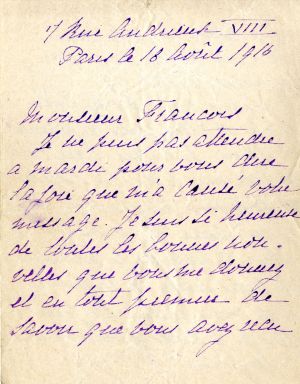 7 Rue Andrieux VIII
Paris le 18 Août 1916
Monsieur François
Je ne puis pas attendre
a mardi pour vous dire
la joie que m'a causé votre
message. Je suis si heureuse
de toutes les bonnes nou-
velles que vous me donnez
et en tout premier de
savoir que vous avez reçu